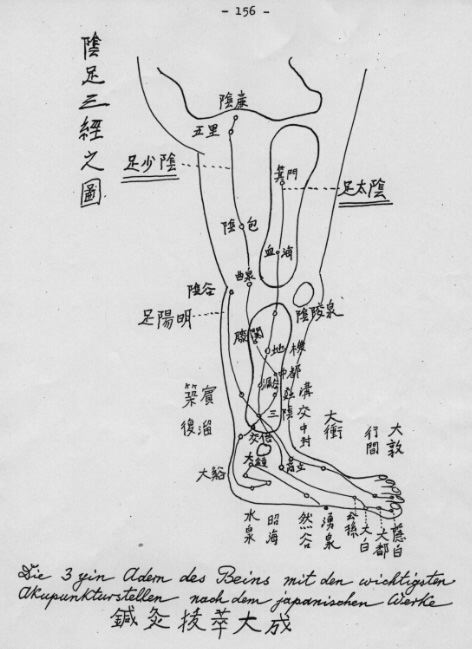 - 156 -
陰足三經之圖
陰廉
五里
足少陰
箕門
足太陰
陰包
血海
曲泉
陰谷
陰陵泉
足陽明
膝関
地機
中都
漏谷
蠡溝
三陰交
中封
築賓
復溜
大衝
行間
大敦
交信
大鐘
商丘
大谿
水泉
昭海
然谷
湧泉
公孫
大白
大都
隱白
Die 3 yin Adern des Beins mit den wichtigsten
Akupunkturstellen nach dem japanischen Werke
鍼灸抜萃大成